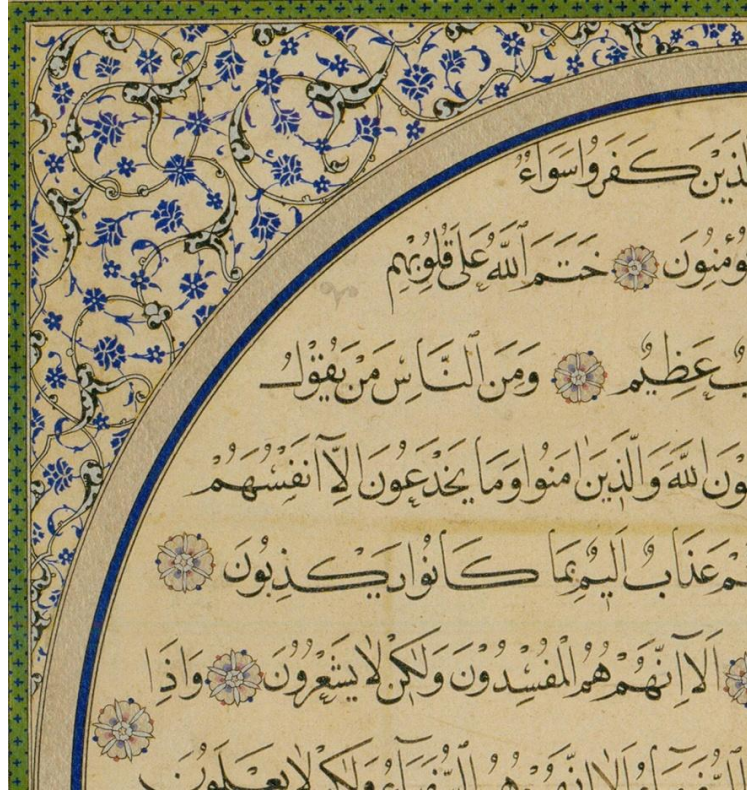 الَّذِينَ كَفَرُوا سَوَاءٌ
يُؤْمِنُونَ خَتَمَ اللَّهُ عَلَى قُلُوبِهِمْ
عَظِيمٌ وَمِنَ النَّاسِ مَنْ يَقُولُ
اللَّهَ وَالَّذِينَ اٰمَنُوا وَمَا يَخْدَعُونَ اِلَّا اَنْفُسَهُمْ
عَذَابٌ اَلِيمٌ بِمَا كَانُوا يَكْذِبُونَ
اَلَا اِنَّهُمْ هُمُ الْمُفْسِدُونَ وَلٰكِنْ لَا يَشْعُرُونَ وَاِذَا
السُّفَهَاءُ اَلَا اِنَّهُمْ هُمُ السُّفَهَاءُ وَلٰكِنْ لَا يَعْلَمُونَ